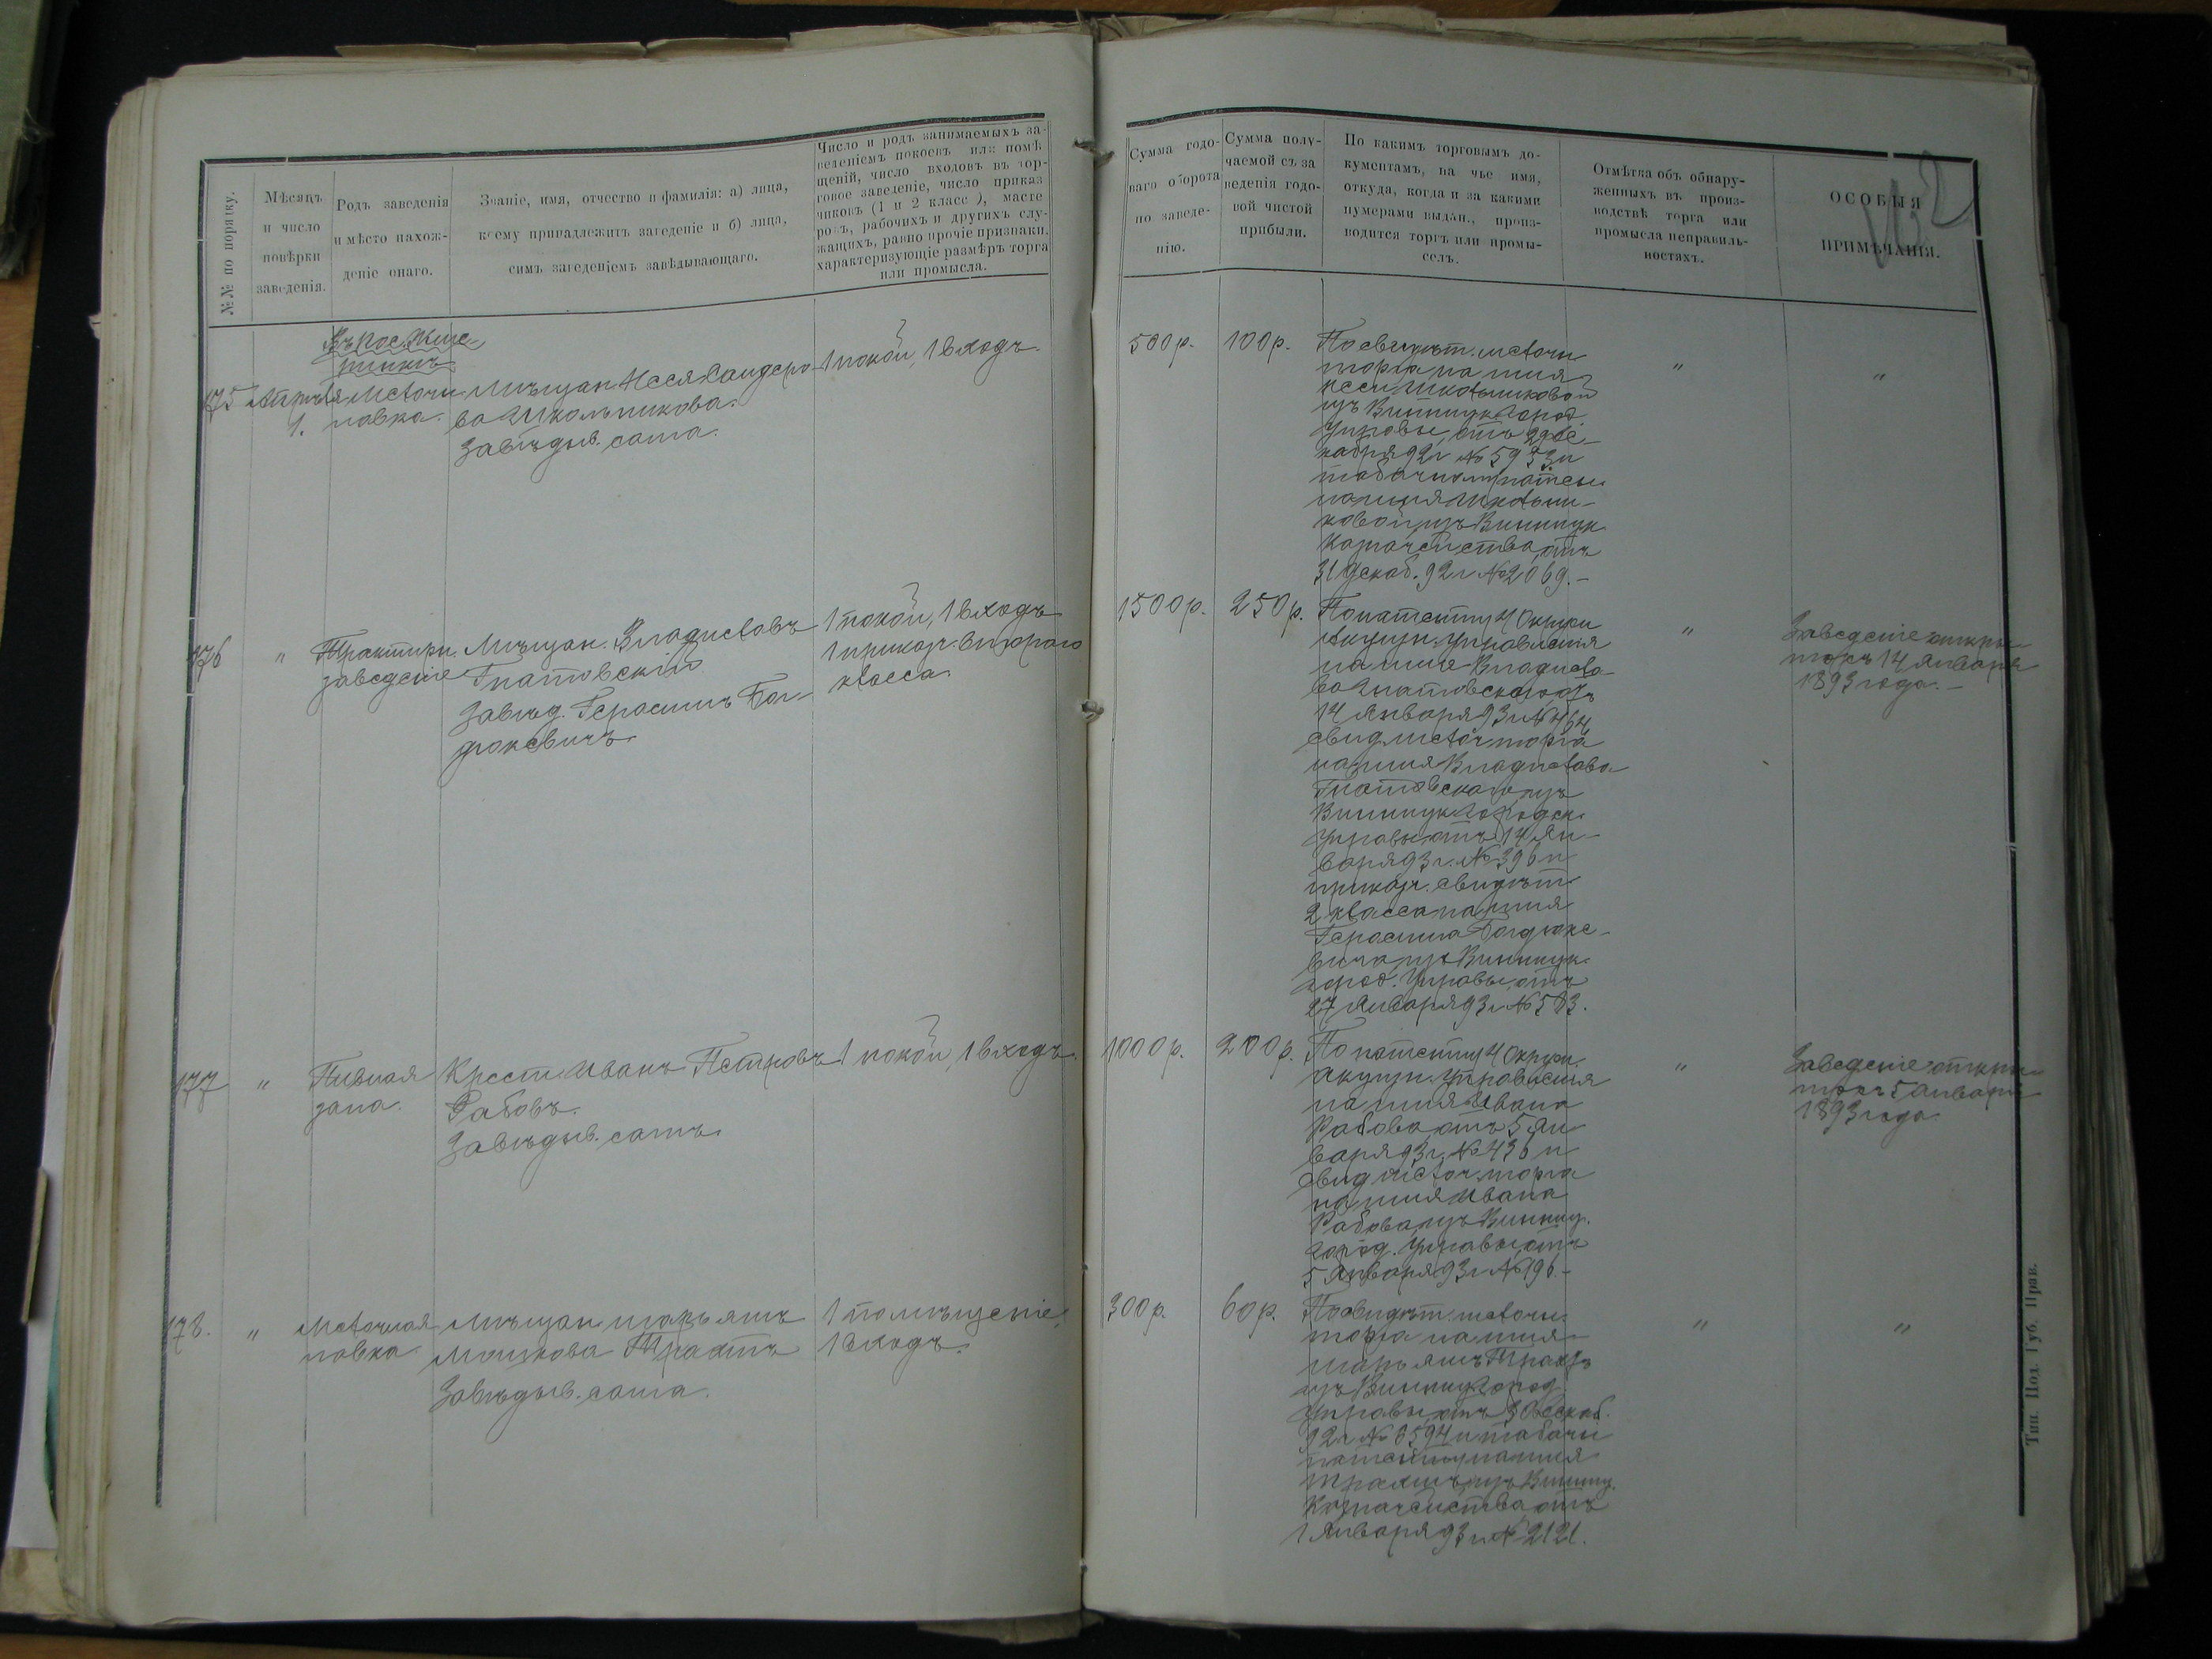 №№ по порядку.
Мѣсяцъ
и число
повѣрки
заведенія.
Родъ заведенія
и мѣсто нахож-
деніе онаго.
Званіе, имя, отчество и фамилія: а) лица,
коему принадлежитъ заведеніе и б) лица,
симъ заведеніемъ завѣдывающаго.
Число и родъ занимаемыхъ за-
веденіемъ покоевъ или помѣ
щеній, число входовъ въ тор-
говое заведеніе, число приказ
чиковъ (1 и 2 класс), масте
ровъ, рабочихъ и другихъ слу-
жащихъ, равно прочіе признаки,
характеризующіе размѣръ торга
или промысла.
Сумма годо-
ваго оборота
по заведе-
нію.
Сумма полу-
чаемой съ за
веденія годо-
вой чистой
прибыли.
По какимъ торговымъ до-
кументамъ, на чье имя,
откуда, когда и за какими
нумерами выдан., произ-
водится торгъ или промы-
селъ.
Отмѣтка объ обнару-
женныхъ въ произ-
водствѣ торга или
промысла неправиль-
ностяхъ.
ОСОБЫЯ
ПРИМѢЧАНІЯ.
Въ пос.
175 Апрѣля
1.
Мелочн.
лавка.
Мѣщан Неся
ва Школьникова.
Завѣдыв. сама.
1 покой, 1 входъ.
500 р.
100 р.
По свидѣт. мелочн.
торга на имя
Неси Школьниковой
изъ Винницк. Город.
Управы отъ 29 де-
кабря 92 г № 5953 и
табачному патен.
на имя Школьни-
ковой изъ Винницк.
Казначейства отъ
31 декаб. 92 г № 2069. -
"
"
176
"
Трактирн.
заведеніе
Мѣщан. Владиславъ
Гнатовскій
Завѣд. Герасимъ Бог-
дюкевичъ.
1 покой, 1 входъ
1 приказ. второго
класса.
1500 р.
250 р.
По патенту 4 Округа
Акцизн. Управленія
на имя Владисла-
ва Гнатовского отъ
14 Января 93 г № 464
свид. мелоч. торга
на имя Владислава
Гнатовскаго изъ
Винницк. Городск.
Управы отъ 14 Ян-
варя 93 г. № 396 и
приказ. свидѣт.
2 класса на имя
Герасима Богдюке-
вича изъ Винницк.
город. Управы отъ
27 Января 93 г № 583.
"
Заведеніе откры-
то съ 14 Января
1893 года. -
177
"
Пивная
зала.
Крест. Иванъ Петровъ
Рабовъ.
Завѣдыв. самъ.
1 покой, 1 входъ.
1000 р.
200 р.
По патенту 4 Округа
Акцизн. Управленія
на имя Ивана
Рабова отъ 5 Ян-
варя 93 г. № 436 и
свид. мелоч. торга
на имя Ивана
Рабова изъ Винниц.
город. Управы отъ
5 Января 93 г № 196. -
"
Заведеніе откры-
то съ 5 Января
1893 года
178.
"
Мелочная
лавка
Мѣщан. Марьямъ
Мошкова
Завѣдыв. сама.
1 помѣщеніе,
1 входъ.
300 р.
60 р.
По свидѣт. мелочн.
торга на имя
Марьямъ
изъ Винниц. Город.
Управы отъ 30 Декаб.
92 г № 6594 и табачн.
патенту на имя
изъ Винниц.
Казначейства отъ
1 Января 93 г № 2121.
"
"
Тип. Под. Губ. Прав.